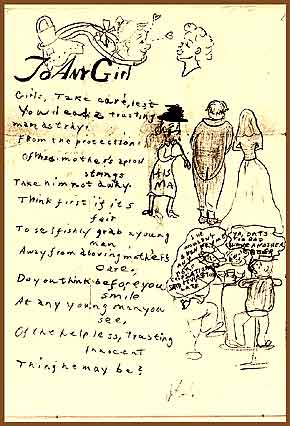 To Any Girl
Girls, Take care, lest
You lead a trusting
man astray.
From the protection
Of his mother's apron
strings
Take him not away.
Think first if it's
fair
To selfishly grab a young
man
Away from a loving mother's
care,
Do you think before you
smile
At any young man you
see,
Of the helpless, trusting
innocent
Thing he may be?
HIS
MA
HE
YA, DATS
TOO BAD
ANOTHER